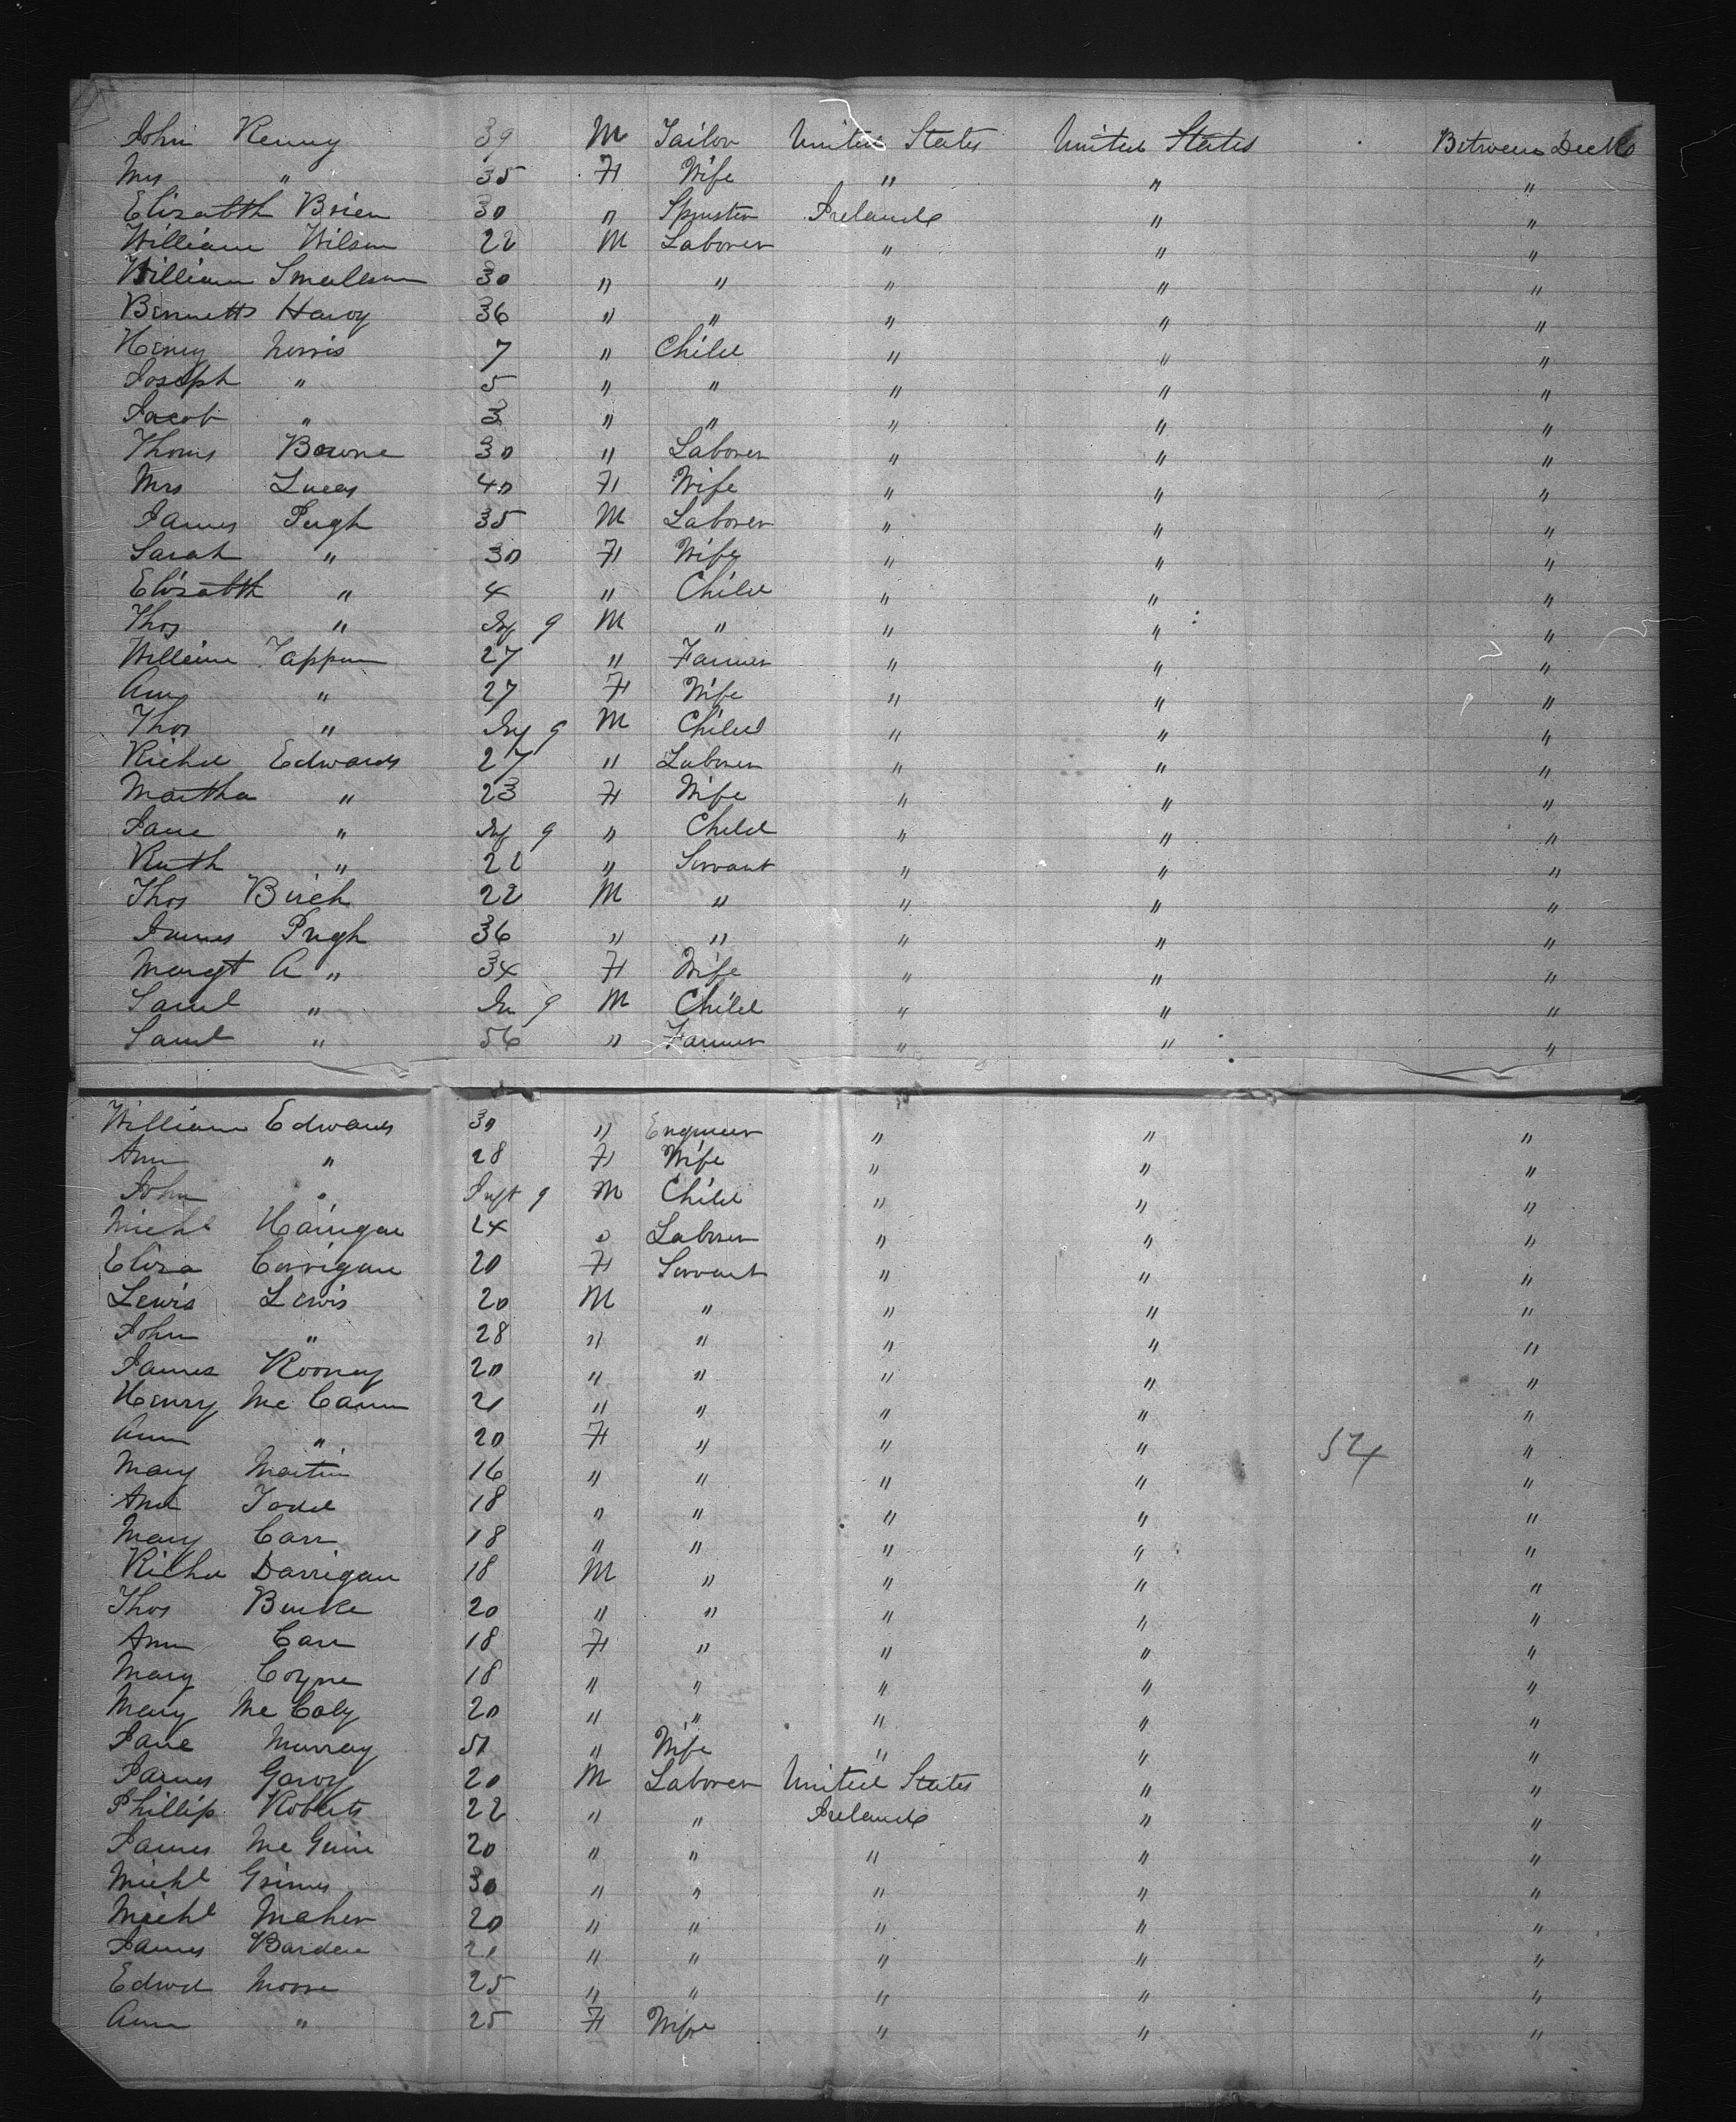 John Kenny 39 M Tailor United States United States Between Decks
Mrs " 35 F Wife " " "
Elizabth Brien 30 " Spinster Ireland " "
William Wilson 22 M Laborer " " "
William Smallman 30 " " " " "
Bennetts Harvy 36 " " " " "
Henry Norris 7 " Child " " "
Joseph " 5 " " " " "
Jacob " 3 " " " " "
Thoms Bowne 30 " Laborer " " "
Mrs Lucas 40 F Wife " " "
James Pugh 35 M Laborer " " "
Sarah " 30 F Wife " " "
Elizabth " 4 " Child " " "
Thos " Inf 9 M " " " "
William Tappin 27 " Farmer " " "
Ann " 27 F Wife " " "
Thos " Inf 9 M Child " " "
Richd Edwards 27 " Laborer " " "
Martha " 23 F Wife " " "
Jane " Inf 9 " Child " " "
Ruth " 22 " Servant " " "
Thos Birch 22 M " " " "
James Pugh 36 " " " " "
Margt A " 34 F Wife " " "
Saml " In 9 M Child " " "
Saml " 56 " Farmer " " "
William Edwards 30 " Engineer " " "
Ann " 28 F Wife " " "
John " Inft 9 M Child " " "
Michl 24 " Laborer " " "
Eliza Corrigan 20 F Servant " " "
Lewis Lewis 20 M " " " "
John " 28 " " " " "
James Rooney 20 " " " " "
Henry Mc Cann 21 " " " " "
Ann " 20 F " " " 54 "
Mary Martin 16 " " " " "
Ann Todd 18 " " " " "
Mary Carr 18 " " " " "
Richd Darrigan 18 M " " " "
Thos Burke 20 " " " " "
Ann Carr 18 F " " " "
Mary Coyne 18 " " " " "
Mary Mc Caby 20 " " " " "
Jane Murray 50 " Wife " " "
James Garvy 20 M Laborer United States " "
Phillip Roberts 22 " " Ireland " "
James Mc Guire 20 " " " " "
Michl Grimes 30 " " " " "
Michl Maher 20 " " " " "
James Barden 21 " " " " "
Edwd Moore 25 " " " " "
Ann " 25 F Wife " " "